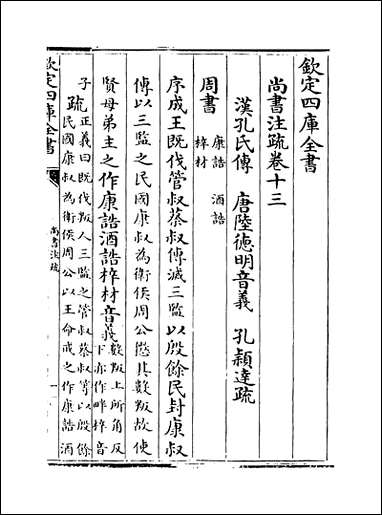 欽定四庫全書
尚書注疏卷十三
漢孔氏傳　唐陸德明音義　孔穎達疏
周書　康誥　酒誥
梓材
序成王既伐管叔蔡叔傳滅三監以殷餘民封康叔
傳以三監之民國康叔為衛侯周公懲其數叛故使
賢母弟主之作康誥酒誥梓材音義數叛上所角反
下亦作畔梓音
子疏正義曰既伐叛人三監之管叔蔡叔等以殷餘
民國康叔為衛侯周公以王命戒之作康誥酒
欽定四庫全書
尚書注疏
一